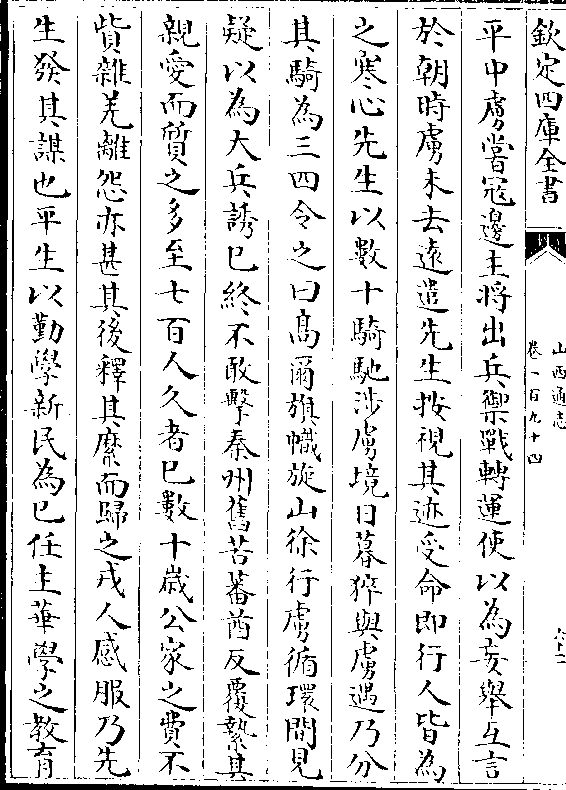 欽定四庫全書
山西通志
卷一百九十四
六十二
平中虜嘗冦邊主將出兵禦戰轉運使以為妄舉互言
於朝時虜未去逺遣先生按視其迹受命即行人皆為
之寒心先生以數十騎馳涉虜境日暮猝與虜遇乃分
其騎為三四令之曰髙爾旗幟旋山徐行虜循環間見
疑以為大兵誘已終不敢擊秦州舊苦蕃酋反覆縶其
親愛而質之多至七百人久者已數十歲公家之費不
貲雜羌離怨亦甚其後釋其縻而歸之戎人感服乃先
生發其謀也平生以勤學新民為已任主華學之教育